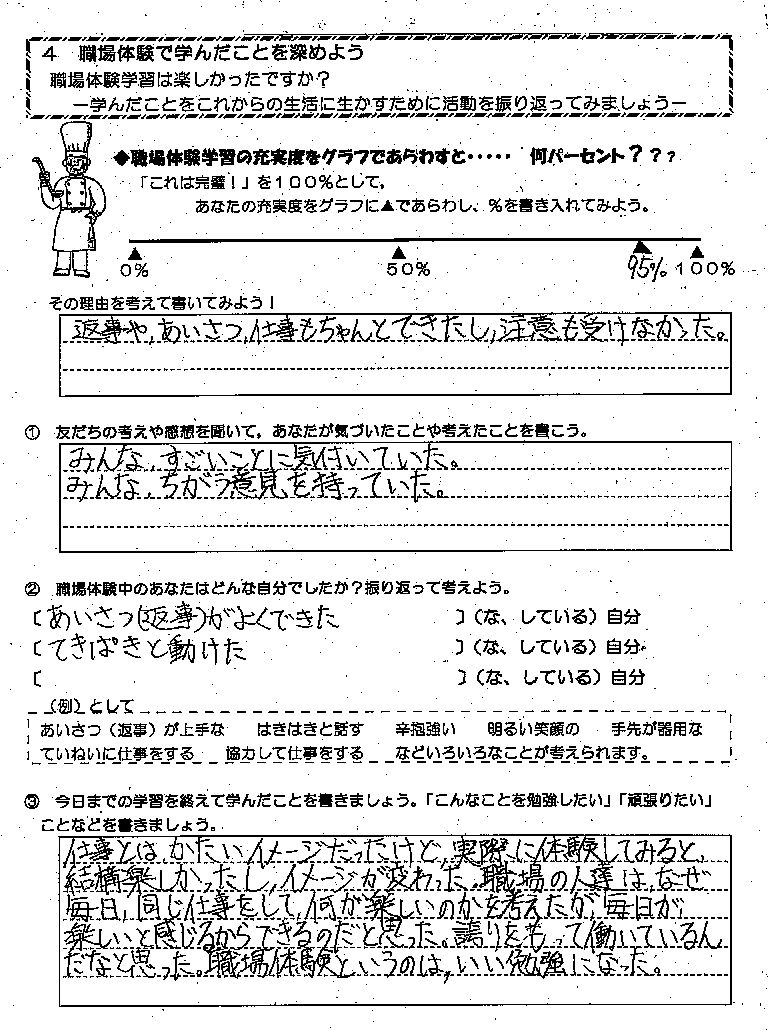 4 職場体験で学んだことを深めよう
職場体験学習は楽しかったですか?
ー学んだことをこれからの生活に生かすために活動を振り返ってみましょうー
◆職場体験学習の充実度をグラフであらわすと・・・・・ 何パーセント???
「これは完璧!」を100%として,
あなたの充実度をグラフに▲であらわし、%を書き入れてみよう。
0% 50% 95% 100%
その理由を考えて書いてみよう!
返事や,あいさつ,仕事もちゃんとできたし,注意も受けなかった。
① 友だちの考えや感想を聞いて,あなたが気づいたことや考えたことを書こう。
みんな,すごいことに気付いていた。
みんな,ちがう意見を持っていた。
② 職場体験中のあなたはどんな自分でしたか?振り返って考えよう。
〔あいさつ(返事)がよくできた 〕(な、している)自分
〔てきぱきと動けた 〕(な、している)自分
〔 〕(な、している)自分
(例)として
あいさつ(返事)が上手な はきはきと話す 辛抱強い 明るい笑顔の 手先が器用な
ていねいに仕事をする 協力して仕事をする などいろいろなことが考えられます。
③ 今日までの学習を終えて学んだことを書きましょう。「こんなことを勉強したい」「頑張りたい」
ことなどを書きましょう。
仕事とは,かたいイメージだったけど,実際に体験してみると,
結構楽しかったし,イメージが変わった。職場の人達は,なぜ
毎日,同じ仕事をして,何が楽しいのかを考えたが,毎日が
楽しいと感じるからできるのだと思った。誇りをもって働いているん
だなと思った。職場体験というのは,いい勉強になった。